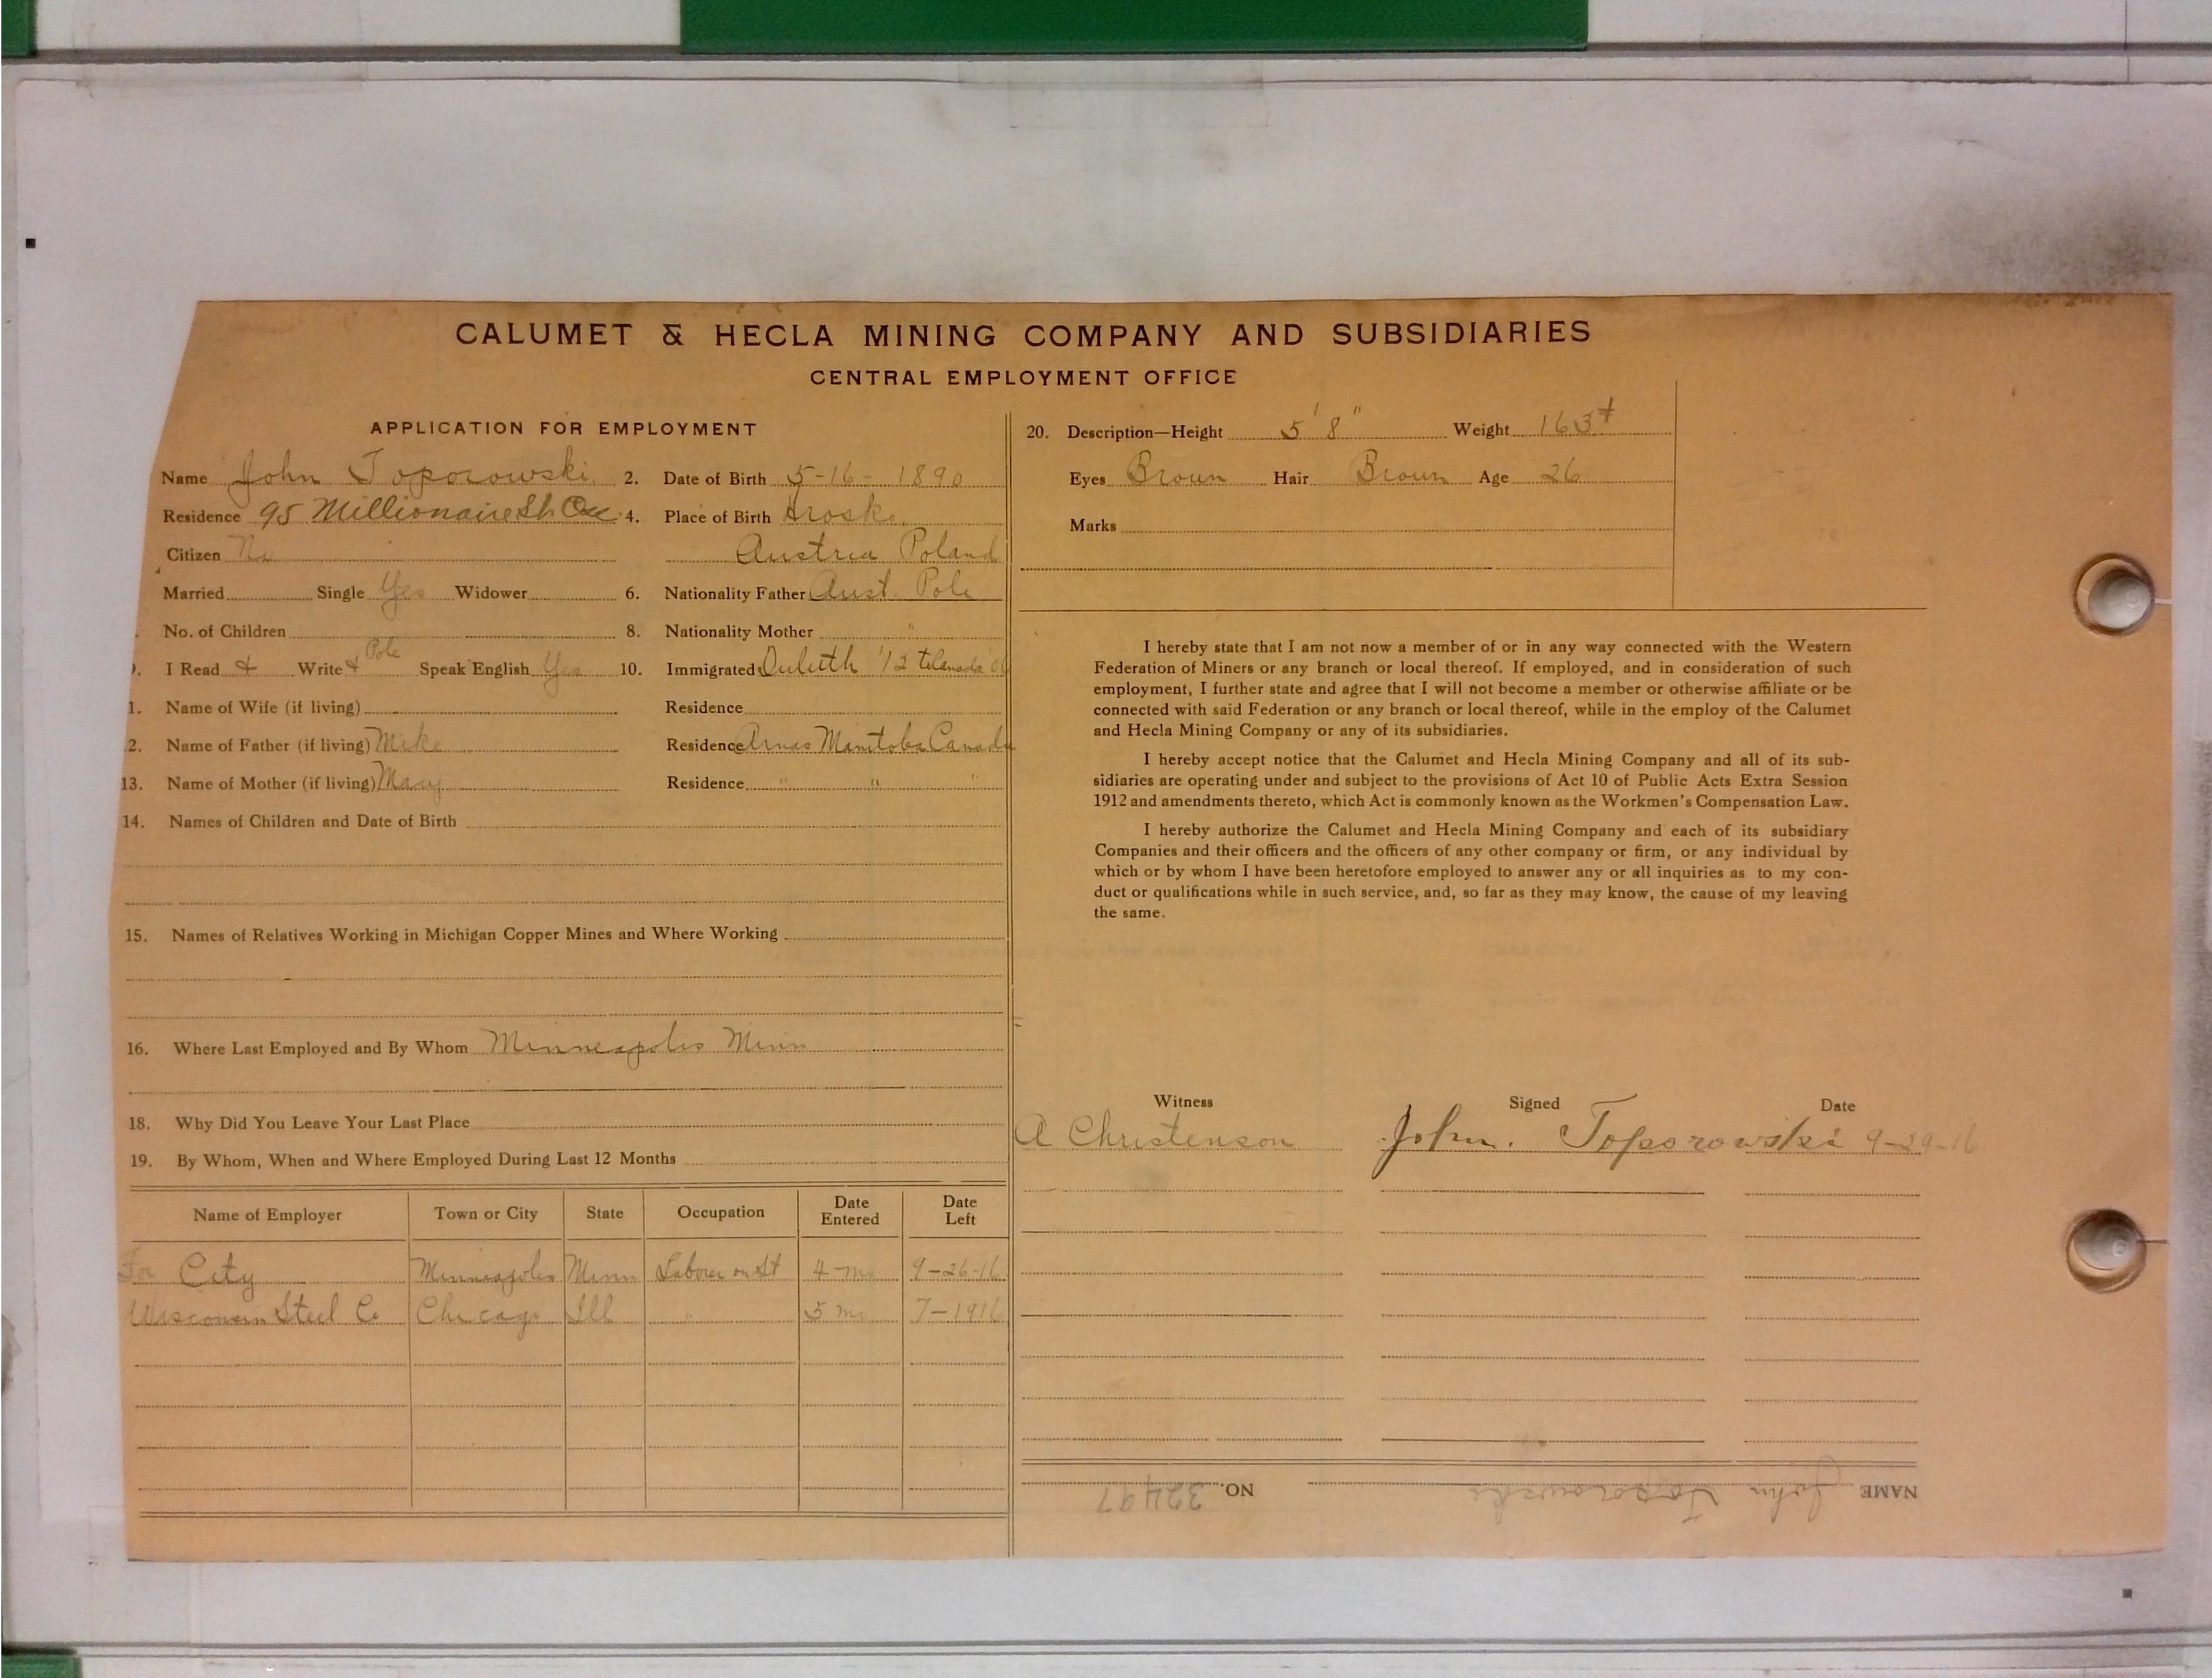 CALUMET & HECLA MINING COMPANY AND SUBSIDIARIES
CENTRAL EMPLOYMENT OFFICE
APPLICATION FOR EMPLOYMENT
Name John Toporowski 2. Date of Birth 5-16-1890
Residence 95 Millionaire St 4. Place of Birth
Citizen No Austria Poland
Married Single Yes Widower 6. Nationality Father Aust. Pole
No. of Children 8. Nationality Mother "
I Read + Write + Pole Speak English Yes 10. Immigrated Duluth '12
1. Name of Wife (if living) Residence
2. Name of Father (if living) Mike Residence Arnes Manitoba Canada
13. Name of Mother (if living) Mary Residence " " "
14. Names of Children and Date of Birth
15. Names of Relatives Working in Michigan Copper Mines and Where Working
16. Where Last Employed and By Whom Minneapolis Minn
18. Why Did You Leave Your Last Place
19. By Whom, When and Where Employed During Last 12 Months
Name of Employer Town or City State Occupation Date Entered Date Left
For City Minneapolis Minn Laborer on St 4 mo 9-26-16
Wisconsin Steel Co Chicago Ill " 5 mo 7-1916
20. Description—Height 5' 8" Weight 163#
Eyes Brown Hair Brown Age 26
Marks
I hereby state that I am not now a member of or in any way connected with the Western
Federation of Miners or any branch or local thereof. If employed, and in consideration of such
employment, I further state and agree that I will not become a member or otherwise affiliate or be
connected with said Federation or any branch or local thereof, while in the employ of the Calumet
and Hecla Mining Company or any of its subsidiaries.
I hereby accept notice that the Calumet and Hecla Mining Company and all of its sub-
sidiaries are operating under and subject to the provisions of Act 10 of Public Acts Extra Session
1912 and amendments thereto, which Act is commonly known as the Workmen's Compensation Law.
I hereby authorize the Calumet and Hecla Mining Company and each of its subsidiary
Companies and their officers and the officers of any other company or firm, or any individual by
which or by whom I have been heretofore employed to answer any or all inquiries as to my con-
duct or qualifications while in such service, and, so far as they may know, the cause of my leaving
the same.
Witness Signed Date
A Christenson John. Toporowski 9-29-16
NAME John Toporowski NO. 32497